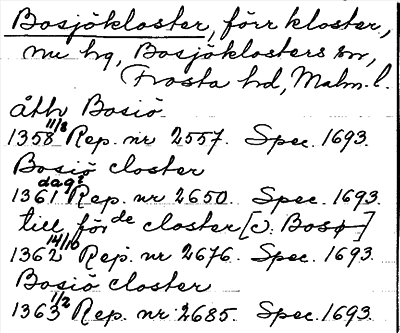 Bosjökloster, förr kloster,
nu hg, Bosjöklosters sn,
Frosta hd, Malm. l.
åtth Bosiö
1358 11/8 Rep. nr 2557. Spec. 1693.
Bosiö closter
1361 dag? Rep. nr 2650. Spec. 1693.
till för de closter [ɔ: Bosø]
1362 14/10 Rep. nr 2676. Spec. 1693.
Bosiö closter
1363 1/2 Rep. nr 2685. Spec. 1693.